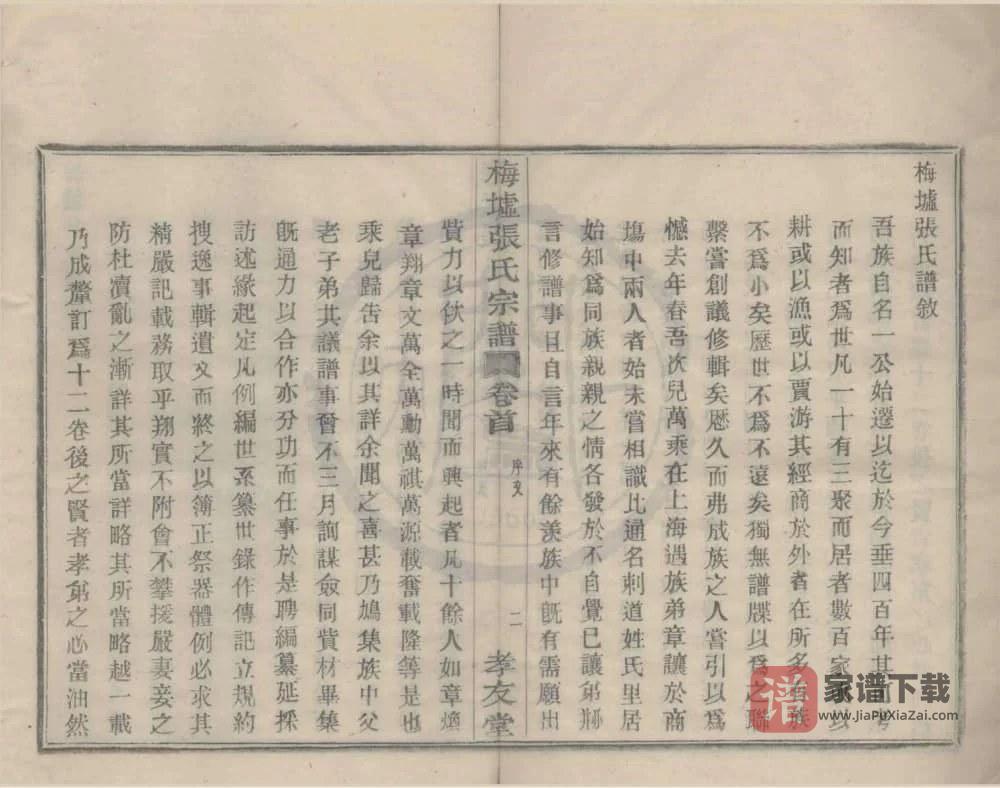 梅墟張氏譜敘
吾族自名一公始遷以迄於今垂四百年其
而知者爲世凡一十有三聚而居者數百家
耕或以漁或以賈游其經商於外者在所多吾族
不爲小矣歷世不爲不遠矣獨無譜牒以爲之聯
繫嘗創議修輯矣歷久而弗成族之人嘗引以爲
憾去年春吾次兒萬乘在上海遇族弟章讓於商
塲中兩人者始未嘗相識比通名刺道姓氏里居
始知爲同族親親之情各發於不自覺已讓弟
言修譜事且自言年來有餘羨族中旣有需願出
梅墟張氏宗譜
卷首
序文
二
孝友堂
貲力以佽之一時聞而興起者凡十餘人如章
章翔章文萬全萬勳萬祺萬源載奮載隆等是也
乘兒歸告余以其詳余聞之喜甚乃鳩集族中父
老子弟共議譜事晉不三月詢謀僉同貲材畢集
旣通力以合作亦分功而任事於是聘編纂延採
訪述緣起定凡例編世系纂世錄作傳記立規約
搜逸事輯遺文而終之以簿正祭器體例必求其
精嚴記載務取乎翔實不附會不攀援嚴妻妾之
防杜瀆亂之漸詳其所當詳略其所當略越一載
乃成釐訂爲十二卷後之賢者孝弟之心當油然
家谱下载
www.JiaPuXiaZai.com
譜